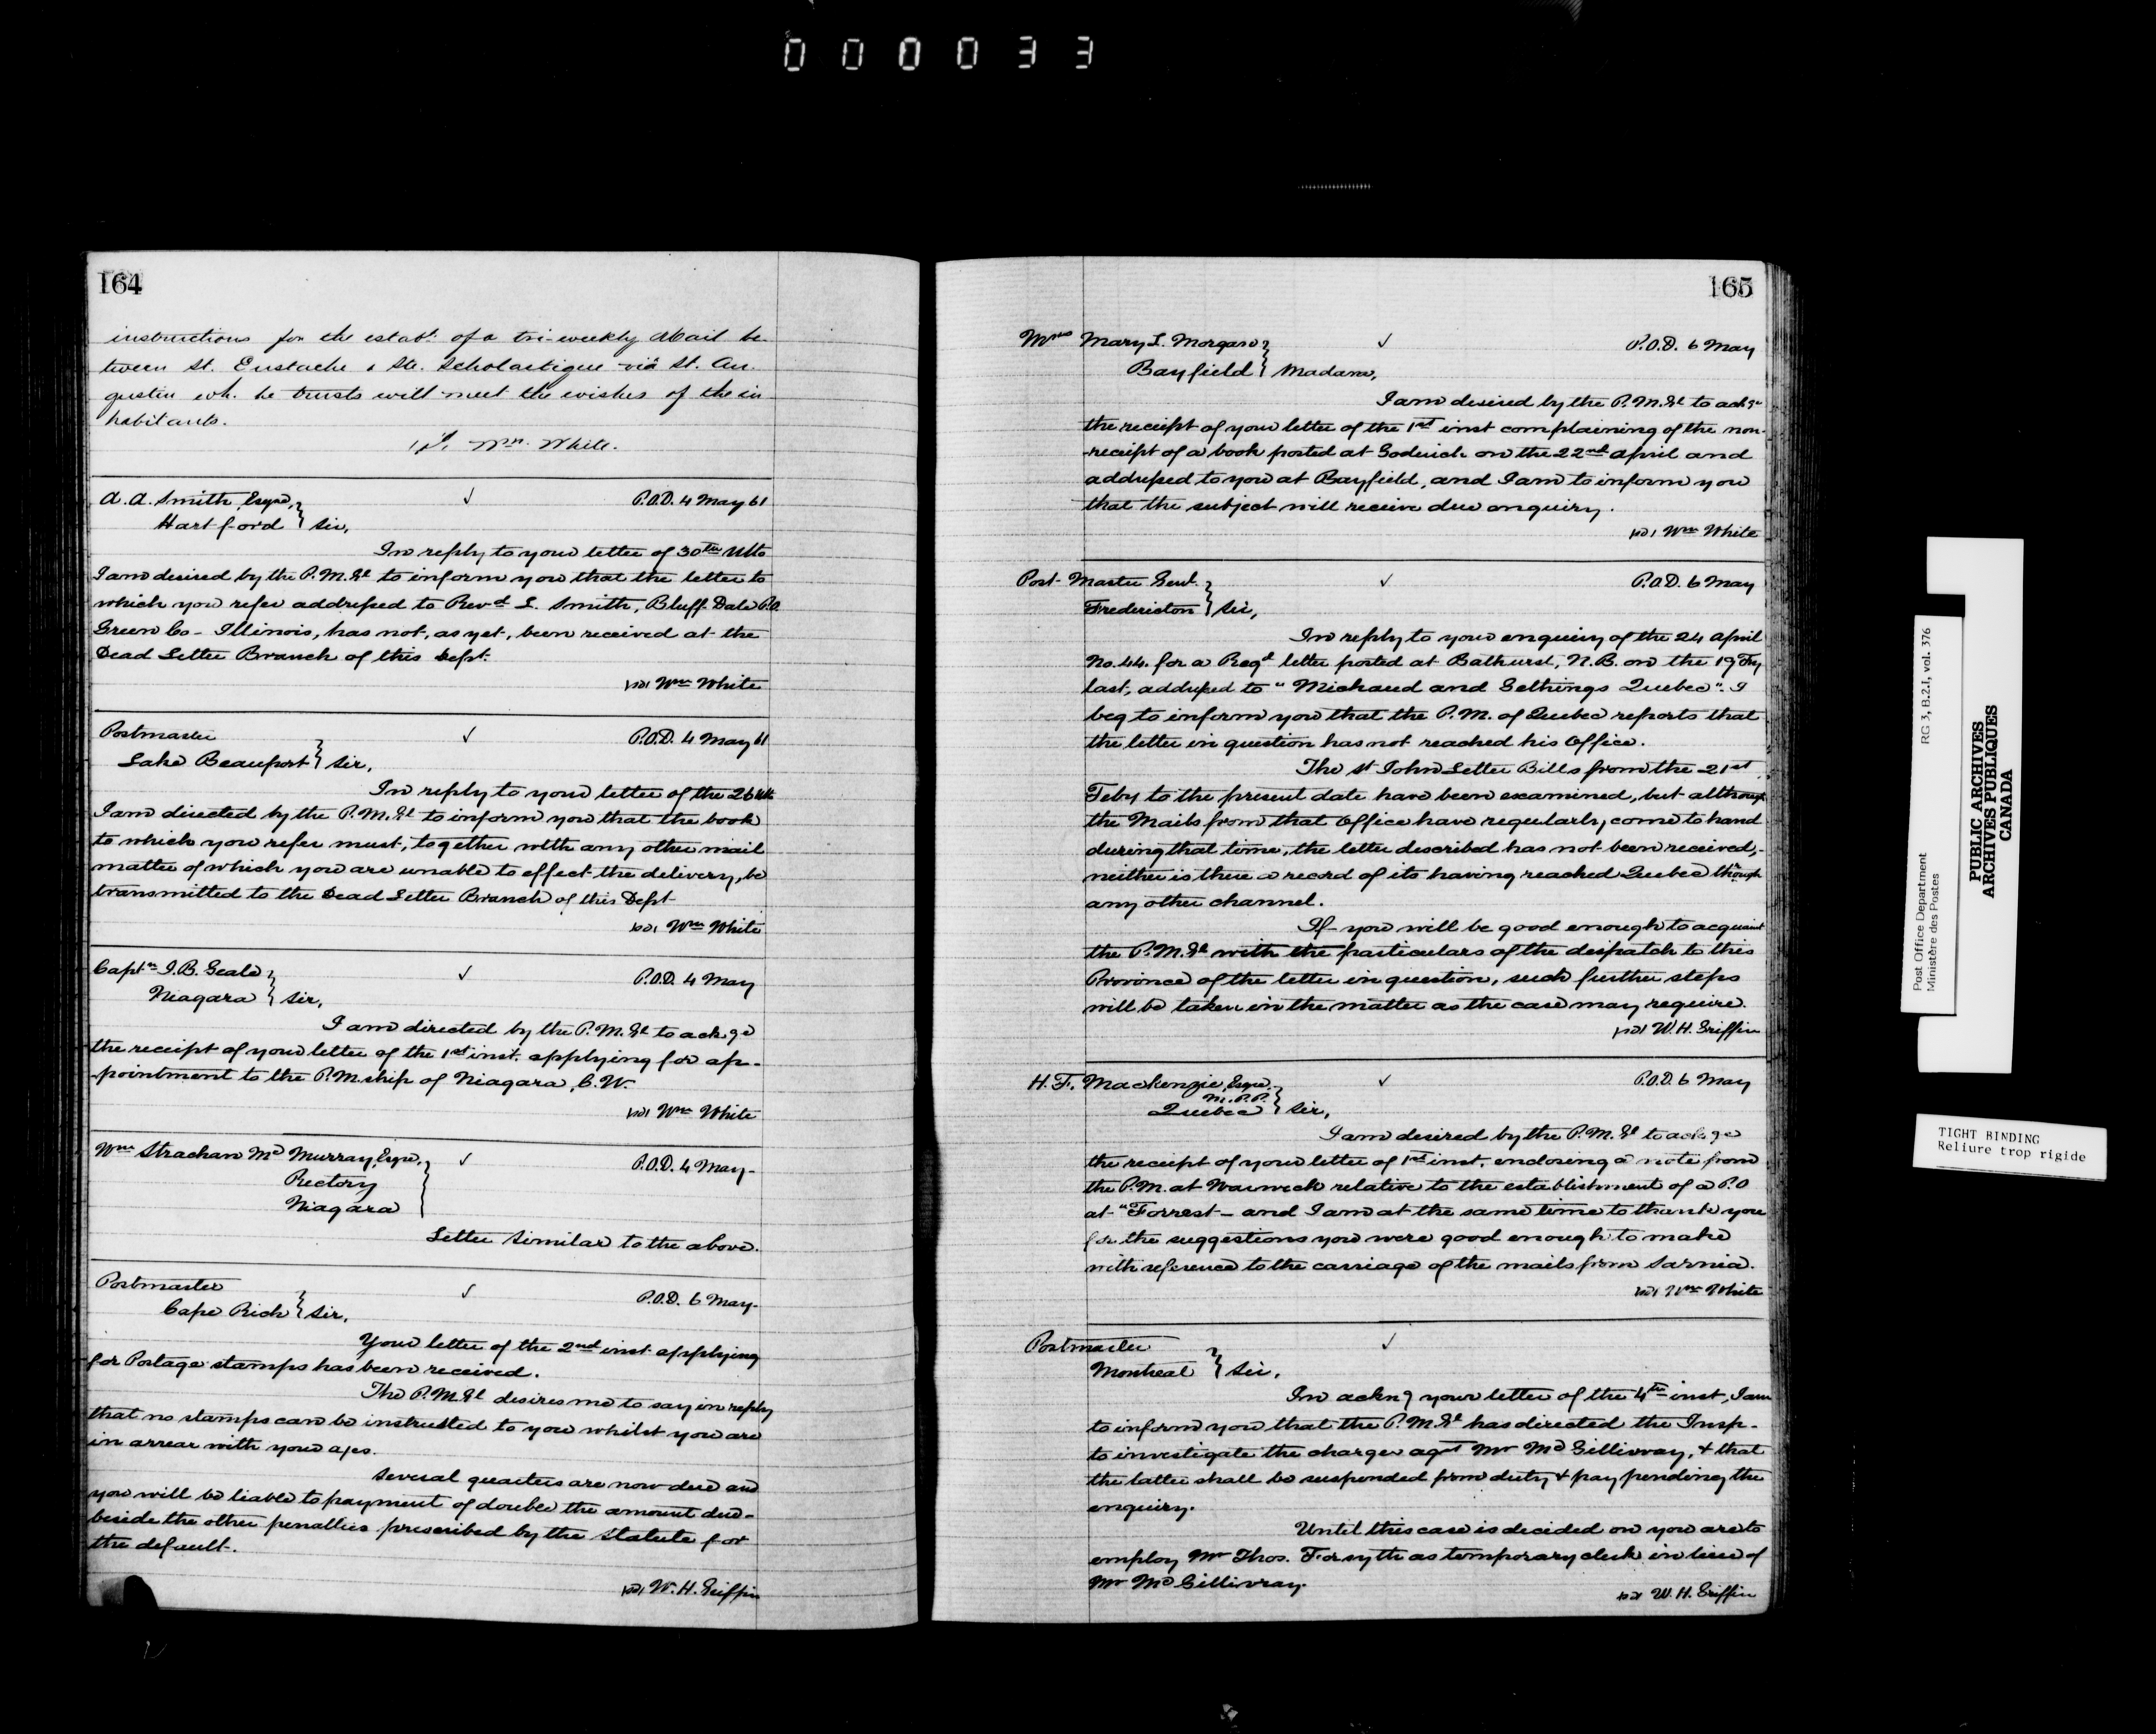 000033
164
instructions for the estabt. of a tri-weekly Mail be
tween St. Eustache & Ste. Scholastique via St. Au.
gustin wh. he trusts will meet the wishes of the in
habitants.
Wm. White.
A. A. Smith, Esqre, P.O.D. 4 May 61
Hartford } Sir,
In reply to your letter of 30th Ulto
I am desired by the P.M.Gl to inform you that the letter to
which you refer addressed to Revd S. Smith, Bluff Dale P.O.
Green Co - Illinois, has not, as yet, been received at the
Dead Letter Branch of this Dept.
Wm White
Postmaster P.O.D. 4 May 61
Lake Beauport } Sir,
In reply to your letter of the 26 Ult
I am directed by the P.M.Gl to inform you that the book
to which you refer must, together with any other mail
matter of which you are unable to effect the delivery, be
transmitted to the Dead Letter Branch of this Dept
Wm White
Captn I.B. Geale P.O.D. 4 May
Niagara } Sir,
I am directed by the P.M.Gl to ackge
the receipt of your letter of the 1st inst. applying for ap-
-pointment to the P.M.ship of Niagara, C.W.
Wm White
Wm Strachan Mc Murray, Esqre, P.O.D. 4 May -
Rectory
Niagara
Letter similar to the above.
Postmaster P.O.D. 6 May -
Cape Rich } Sir,
Your letter of the 2nd inst. applying
for Postage stamps has been received.
The P.M.Gl desires me to say in reply
that no stamps can be instrusted to you whilst you are
in arrear with your a/cs.
Several quarters are now due and
you will be liable to payment of double the amount due -
beside the other penalties prescribed by the Statute for
the default.
W. H. Griffin
165
Mrs Mary I. Morgan P.O.D. 6 May
Bayfield } Madam,
I am desired by the P.M.Gl to ackge
the receipt of your letter of the 1st inst complaining of the non-
-receipt of a book posted at Goderich on the 22nd April and
addressed to you at Bayfield, and I am to inform you
that the subject will receive due enquiry.
Wm White
Post-Master Genl. P.O.D. 6 May
Fredericton } Sir,
In reply to your enquiry of the 24 April
No. 44. for a Regd letter posted at Bathurst, N.B. on the 19 Fby
last, addressed to "Michaud and Gethings Quebec". I
beg to inform you that the P.M. of Quebec reports that
the letter in question has not reached his Office.
The St John Letter Bills from the 21st
Feby to the present date have been examined, but although
the Mails from that Office have regularly come to hand
during that time, the letter described has not been received, -
neither is there a record of its having reached Quebec through
any other channel.
If you will be good enough to acquaint
the P.M.Gl with the particulars of the despatch to this
Province of the letter in question, such further steps
will be taken in the matter as the case may require.
W. H. Griffin
H. F. Mackenzie, Esqre. P.O.D. 6 May
M.P.P.
Quebec } Sir,
I am desired by the P.M.Gl to ackge
the receipt of your letter of 1st inst. enclosing a note from
the P.M. at Warwick relative to the establishment of a P.O
at "Forrest - and I am at the same time to thank you
for the suggestions you were good enough to make
with reference to the carriage of the mails from Sarnia.
Wm White
Postmaster
Montreal } Sir,
In ackng your letter of the 4th inst, I am
to inform you that the P.M.Gl has directed the Insp-
to investigate the charges agst Mr McGillivray, & that
the latter shall be suspended from duty & pay pending the
enquiry.
Until this case is decided on you are to
employ Mr Thos. Forsyth as temporary clerk in lieu of
Mr McGillivray.
W. H. Griffin
Post Office Department RG 3, B.2.I, vol. 376
Ministère des Postes
PUBLIC ARCHIVES
ARCHIVES PUBLIQUES
CANADA
TIGHT BINDING
Reliure trop rigide